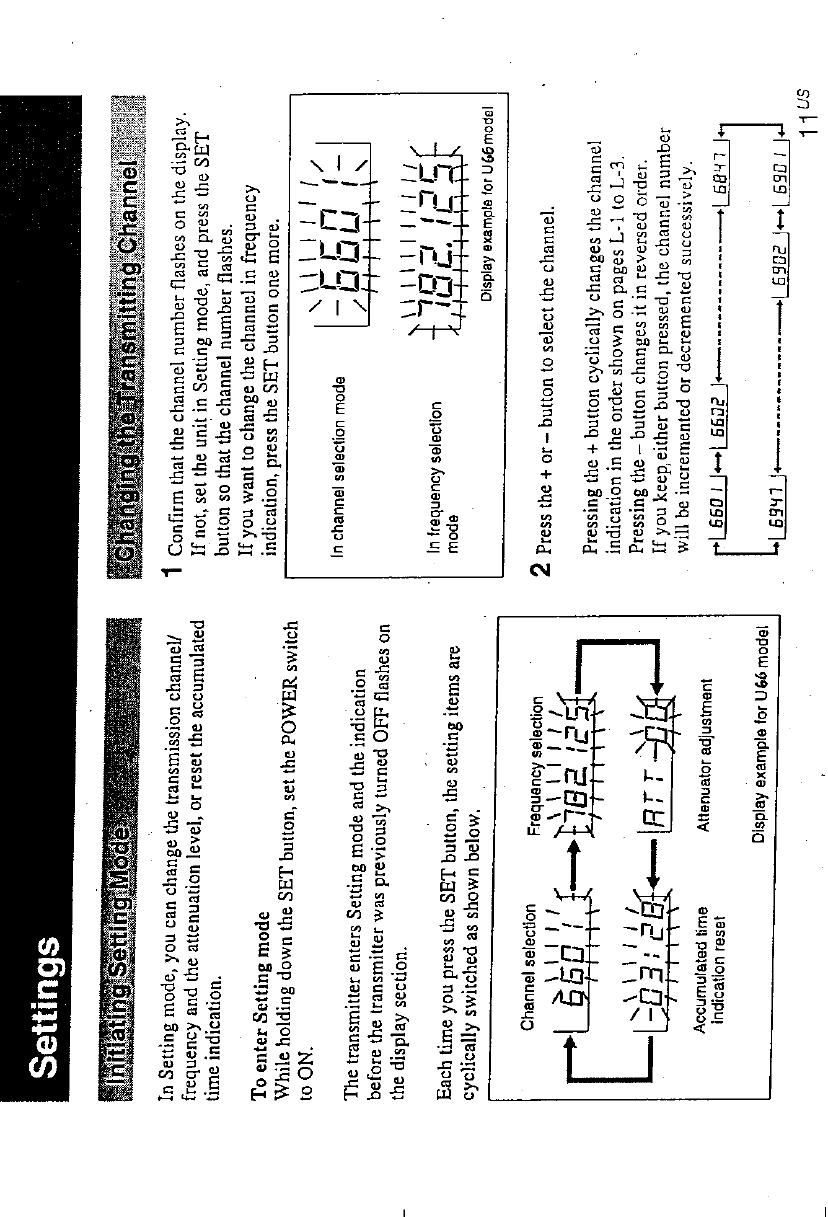 Settings
Initiating Setting Mode
In Setting mode, you can change the transmission channel/
frequency and the attenuation level, or reset the accumulated
time indication.
To enter Setting mode
While holding down the SET button, set the POWER switch
to ON.
The transmitter enters Setting mode and the indication
before the transmitter was previously turned OFF flashes on
the display section.
Each time you press the SET button, the setting items are
cyclically switched as shown below.
Channel selection
Frequency selection
6601
782.125
03:28
ATT 00
Accumulated time
indication reset
Attenuator adjustment
Display example for U66 model
Changing the Transmitting Channel
1 Confirm that the channel number flashes on the display.
If not, set the unit in Setting mode, and press the SET
button so that the channel number flashes.
If you want to change the channel in frequency
indication, press the SET button one more.
In channel selection mode
6601
In frequency selection
mode
782.125
Display example for U66 model
2 Press the + or – button to select the channel.
Pressing the + button cyclically changes the channel
indication in the order shown on pages L-1 to L-3.
Pressing the – button changes it in reversed order.
If you keep, either button pressed, the channel number
will be incremented or decremented successively.
6601 6602 6847
6947 6902 6901
11 US